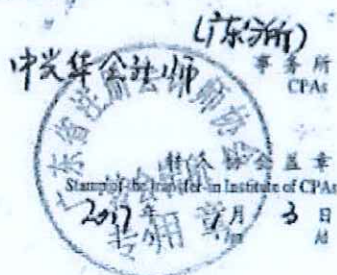 (广东分所)
中兴华会计师
事务所
CPAs
广东省注册会计师协会
转入协会盖章
Stamp of the transfer-in Institute of CPAs
专用章
2017年 月 3日
/m /d